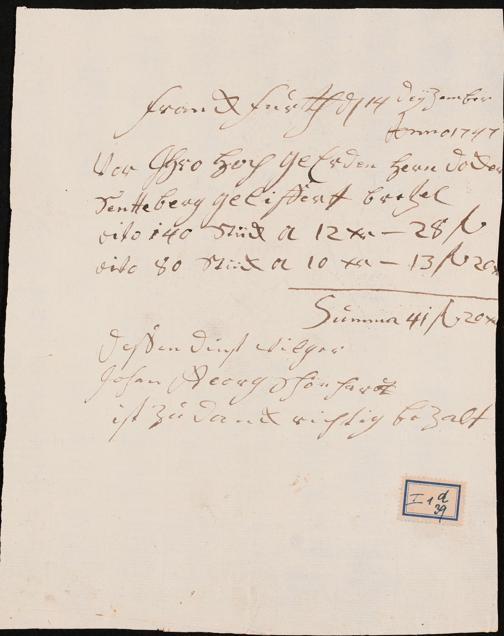 franckfurtth d 14 deyzember
Anno 1747
Vor Ihro hoch geErden Herrn docter
Senkeberg geliffert bretzel
dito 140 Stück a 12 xr — 28 fl
dito 80 Stück a 10 xr — 13 fl 20 xr
Summa 41 fl 20 xr
dessen dinst williger
Johan Georg
ist zu danck richtig bezalt
I 1 d
39